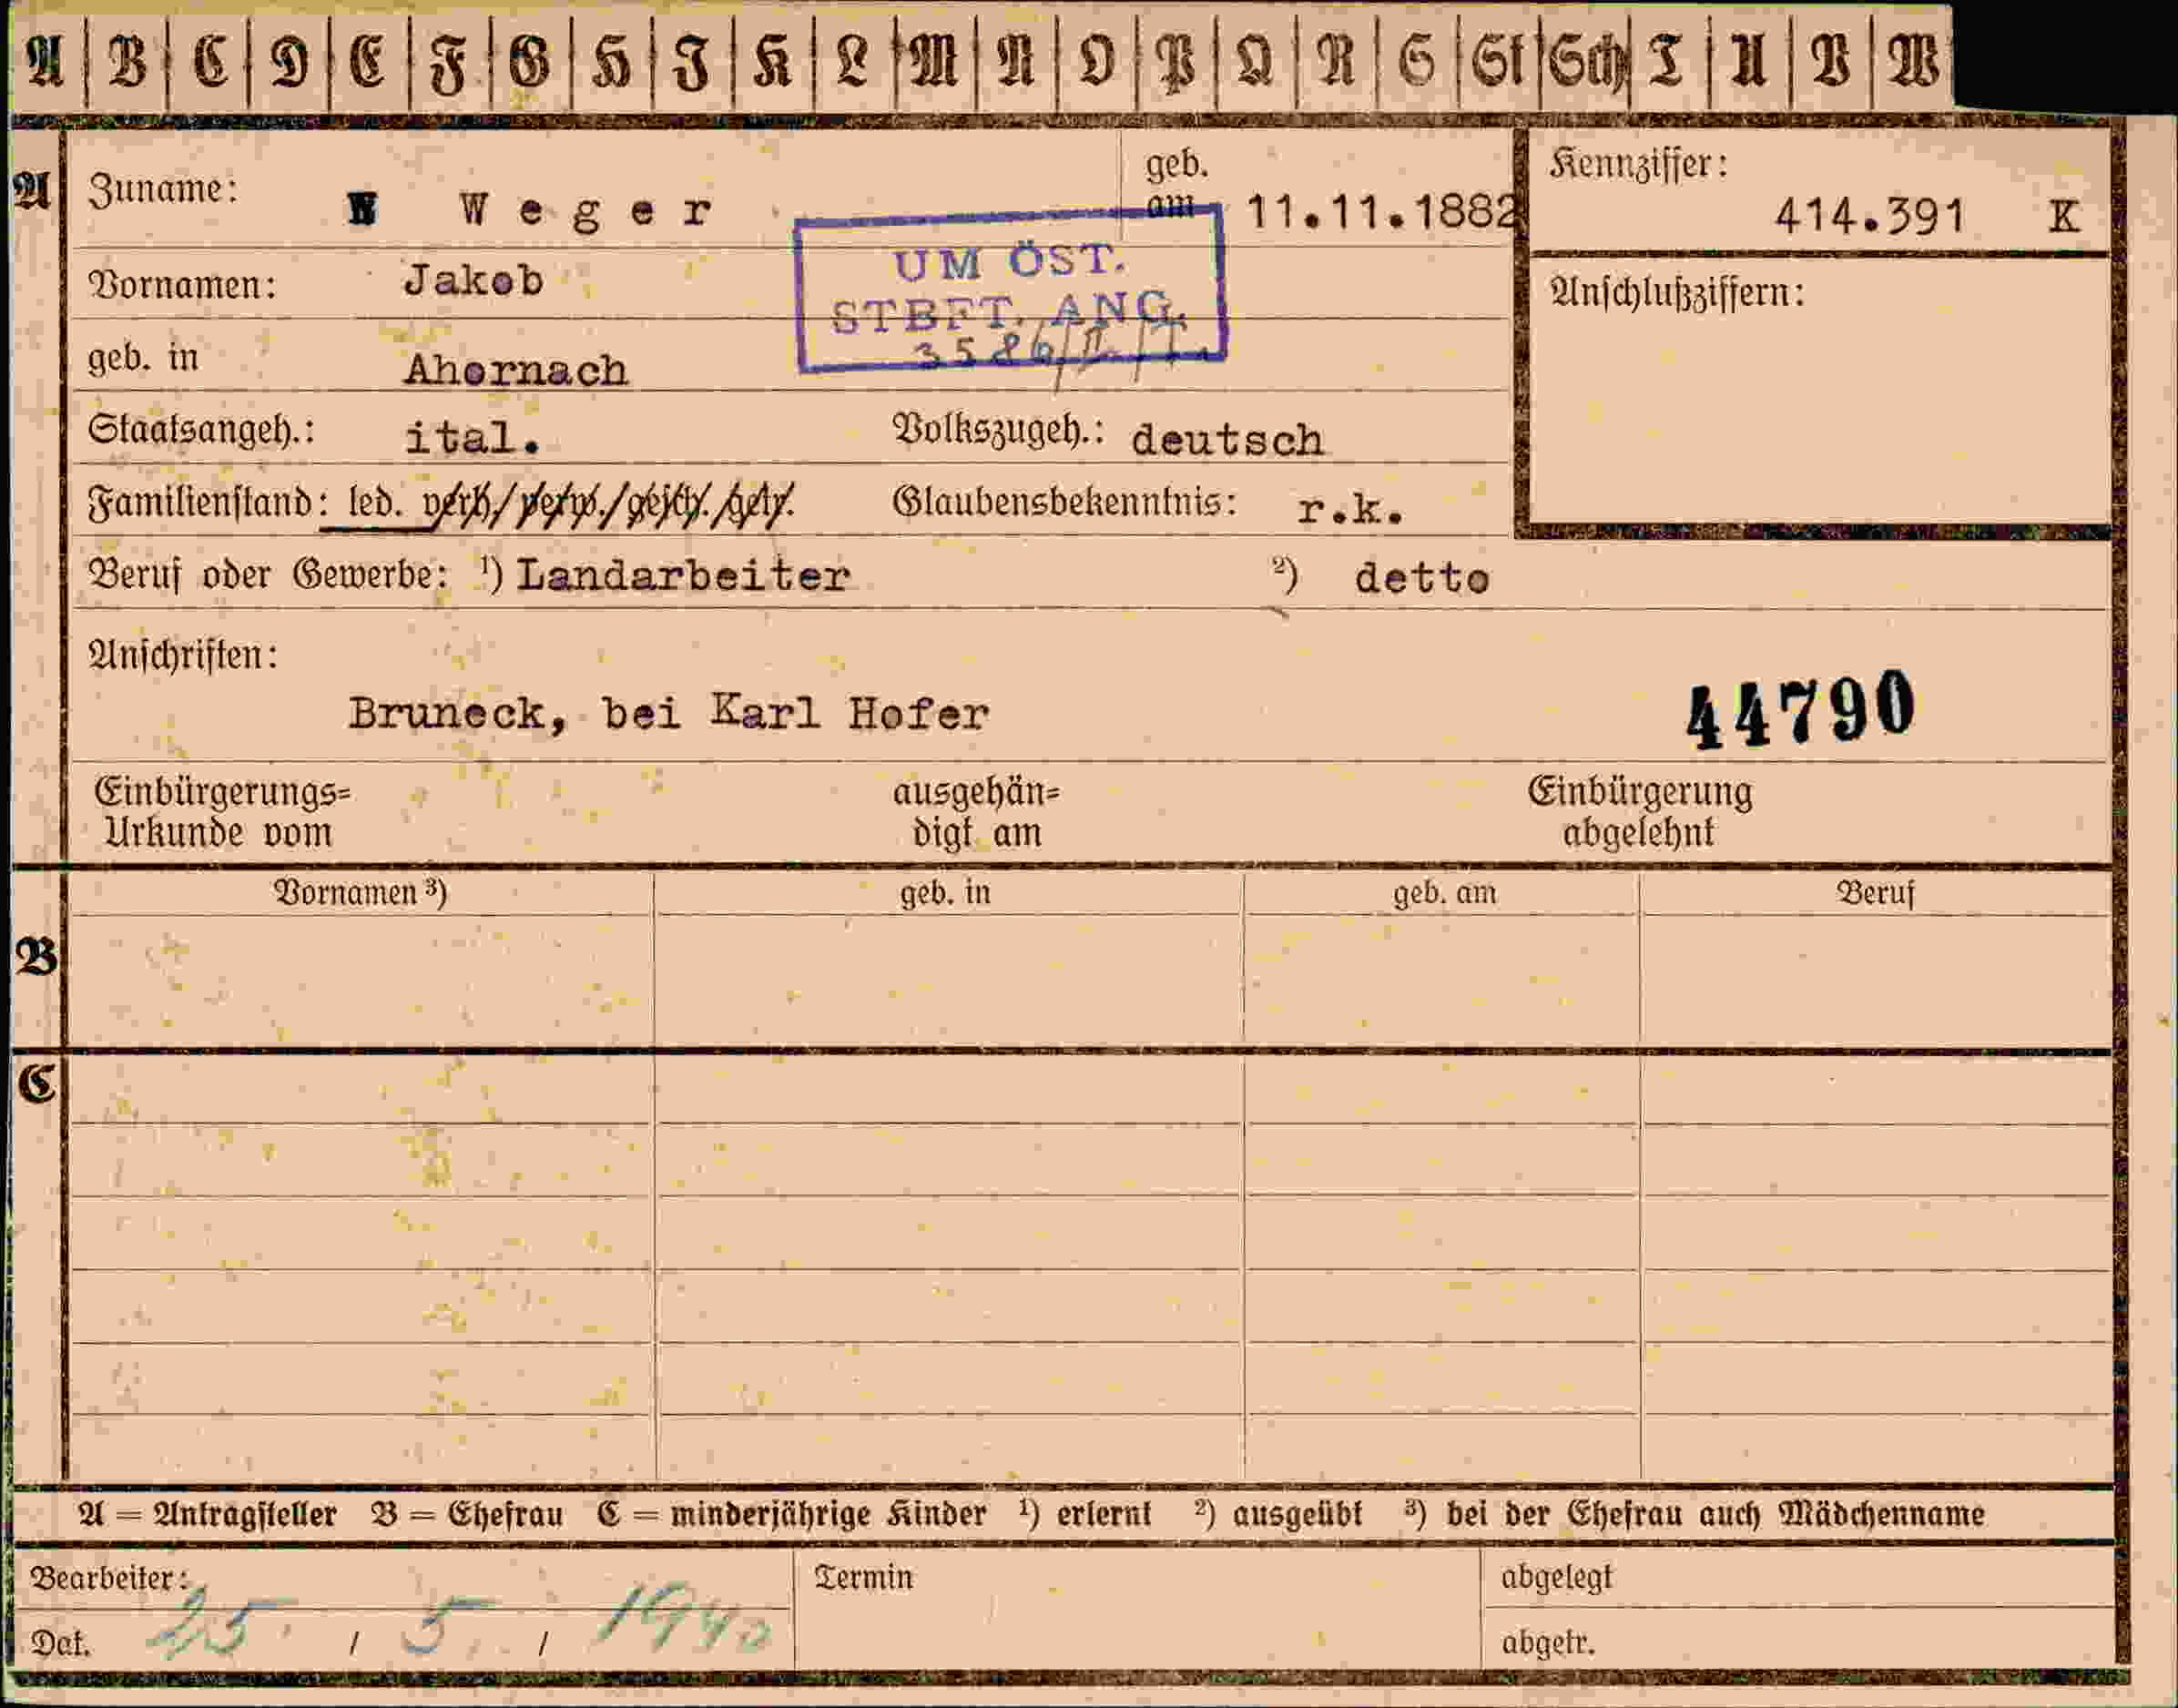 A B C D E F G H I K L M N O P Q R S St Sch T U V W
A Zuname: W Weger geb. am 11.11.1882 Kennziffer: 414.391 K
UM ÖST.
STBFT. ANG.
Vornamen: Jakob Anschlußziffern:
geb. in Ahornach
Staatsangeh.: ital. Volkszugeh.: deutsch
Familienstand: led. verh./verw./gesch./getr. Glaubensbekenntnis: r.k.
Beruf oder Gewerbe: ¹) Landarbeiter ²) detto
Anschriften:
Bruneck, bei Karl Hofer 44790
Einbürgerungs= ausgehän= Einbürgerung
Urkunde vom digt am abgelehnt
Vornamen ³) geb. in geb. am Beruf
B
C
A = Antragsteller B = Ehefrau C = minderjährige Kinder ¹) erlernt ²) ausgeübt ³) bei der Ehefrau auch Mädchenname
Bearbeiter: Termin abgelegt
Dat. 25. / 5. / 1940 abgetr.